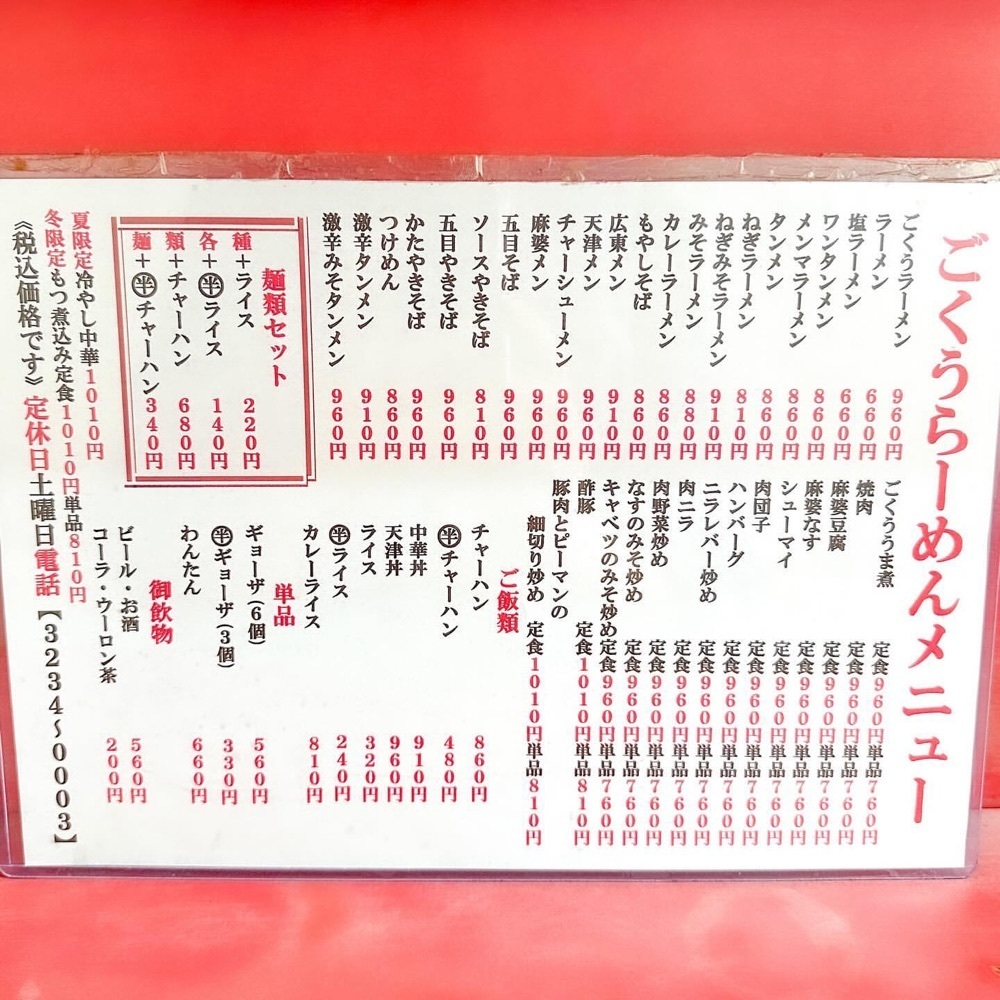 ごくうらーめんメニュー
ごくうラーメン 960円
ラーメン 660円
塩ラーメン 660円
ワンタンメン 860円
メンマラーメン 860円
タンメン 860円
ねぎラーメン 810円
ねぎみそラーメン 910円
みそラーメン 880円
カレーラーメン 860円
もやしそば 860円
広東メン 910円
天津メン 960円
チャーシューメン 960円
麻婆メン 960円
五目そば 960円
ソースやきそば 810円
五目やきそば 960円
かたやきそば 960円
つけめん 860円
激辛タンメン 910円
激辛みそタンメン 960円
麺類セット
種+ライス 220円
各+㊥ライス 140円
類+チャーハン 680円
麺+半チャーハン 340円
ごくううま煮 定食960円単品760円
焼肉 定食960円単品760円
麻婆豆腐 定食960円単品760円
麻婆なす 定食960円単品760円
シューマイ 定食960円単品760円
肉団子 定食960円単品760円
ハンバーグ 定食960円単品760円
ニラレバー炒め 定食960円単品760円
肉ニラ 定食960円単品760円
肉野菜炒め 定食960円単品760円
なすのみそ炒め 定食960円単品760円
キャベツのみそ炒め 定食960円単品760円
酢豚 定食1010円単品810円
豚肉とピーマンの
細切り炒め 定食1010円単品810円
ご飯類
チャーハン 860円
半チャーハン 480円
中華丼 910円
天津丼 960円
ライス 320円
半ライス 240円
カレーライス 810円
単品
ギョーザ(6個) 560円
半ギョーザ(3個) 330円
わんたん 660円
御飲物
ビール・お酒 560円
コーラ・ウーロン茶 200円
夏限定冷やし中華1010円
冬限定もつ煮込み定食1010円単品810円
《税込価格です》定休日土曜日電話【3234〜0003】